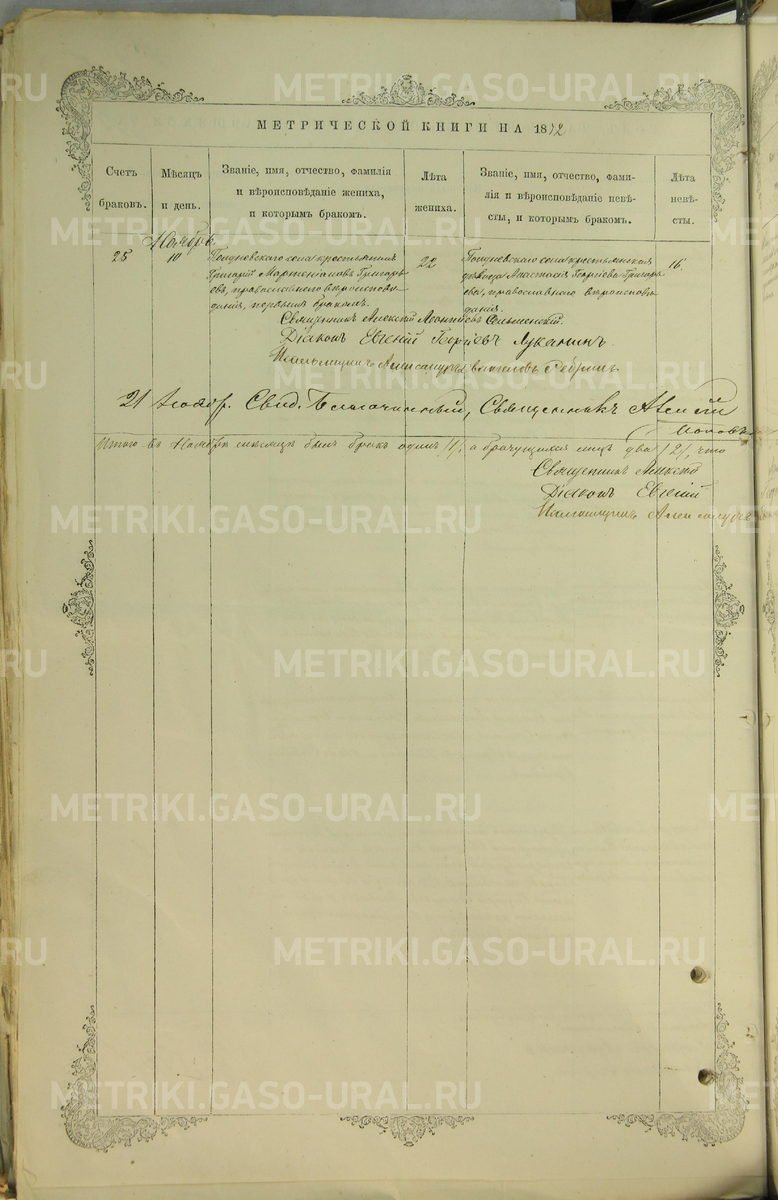 МЕТРИЧЕСКОЙ КНИГИ НА 1872
Счетъ браковъ.
Мѣсяцъ и день.
Званіе, имя, отчество, фамилія и вѣроисповѣданіе жениха, и которымъ бракомъ.
Лѣта жениха.
Званіе, имя, отчество, фамилія и вѣроисповѣданіе невѣсты, и которымъ бракомъ.
Лѣта невѣсты.
Ноябрь
25
10
Полдневскаго села крестьянинъ
Григорій Мартеніановъ Григорь
евъ, православнаго вѣроисповѣ
данія, первымъ бракомъ.
22
Полдневскаго села крестьянская
дѣвица Анастасія Георгіева Григорь
ева, православнаго вѣроисповѣ
данія.
16
Священникъ Алексій Леонтіевъ
Діаконъ Евгеній Георгіевъ Луканинъ
Псаломщикъ Александръ
21 Ноябр. Свид. Благочинный, Священникъ Алексій
Поповъ
Итого въ Ноябрѣ мѣсяцѣ былъ бракъ одинъ /1/, а брачущихся лицъ два /2/, что
Священникъ Алексій
Діаконъ Евгеній
Псаломщикъ Александръ
METRIKI.GASO-URAL.RU